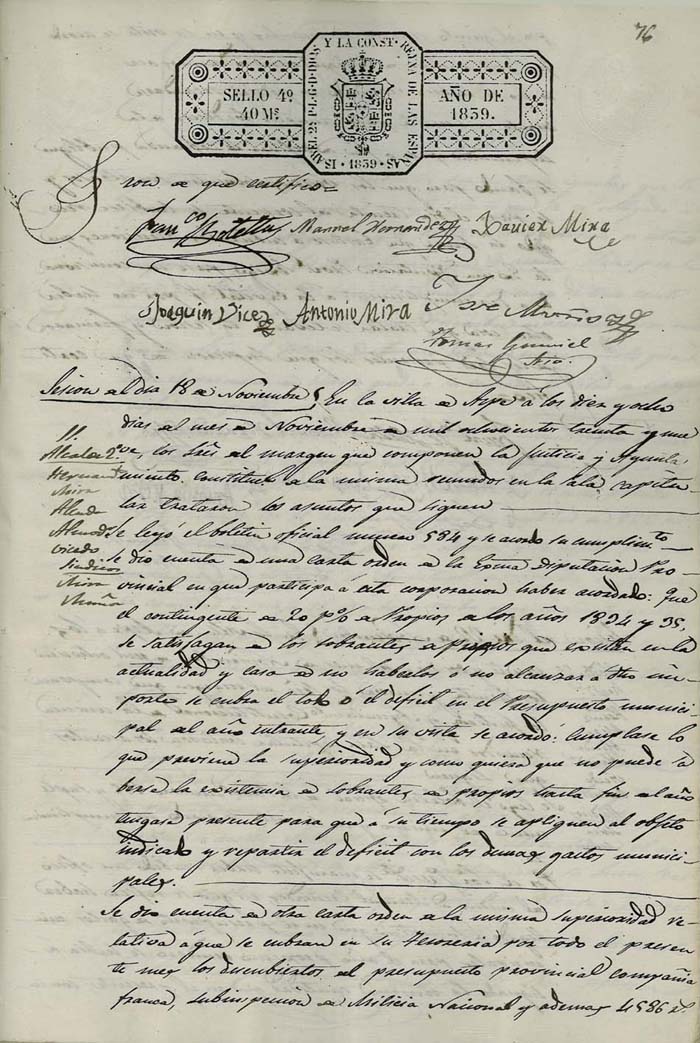 76
ISABEL 2ª P.L.G.D.DIOS Y LA CONST. REYNA DE LAS ESPAÑAS
SELLO 4º
40 Ms
AÑO DE
1839.
· 1839 ·
de que certifico=
Franco Botella Manuel Hernandez Xavier Mira
Joaquin Vicedo Antonio Mira Jose
Tomas
Srio.
Sesion del dia 18 de Noviembre En la villa de Aspe á los diez y ocho
dias del mes de Noviembre de mil ochocientos treinta y nue
ve, los Sres del margen que componen la Justicia y Ayunta
miento constitucl de la misma reunidos en la sala capitu
lar trataron los asuntos que siguen
SS.
Alcalde 2º
Hernandz
Mira
Almod
Vicedo
Sindicos
Mira
Se leyó el boletin oficial numero 584 y se acordo su cumplimto
Se dio cuenta de una carta orden de la Exma Diputacion Pro
vincial en que participa á esta corporacion haber acordado: Que
el contingente de 20 p% de Propios de los años 1834 y 35,
se satisfagan de los sobrantes de propios que existen en la
actualidad y caso de no haberlos ó no alcanzar á dho im
porte se cubra el todo ó el deficit en el Presupuesto munici
pal del año entrante, y en su vista se acordó: cumplase lo
que previene la superioridad y como quiera que no puede sa
berse la existencia de sobrantes de propios hasta fin del año
tengase presente para que á su tiempo se apliquen al objeto
indicado y repartir el deficit con los demas gastos munici
pales.
Se dio cuenta de otra carta orden de la misma superioridad re
lativa á que se cubran en su Tesoreria por todo el presen
te mes los descubiertos del presupuesto provincial compañia
franca, subinspeccion de Milicia Nacional y ademas 4586 rs